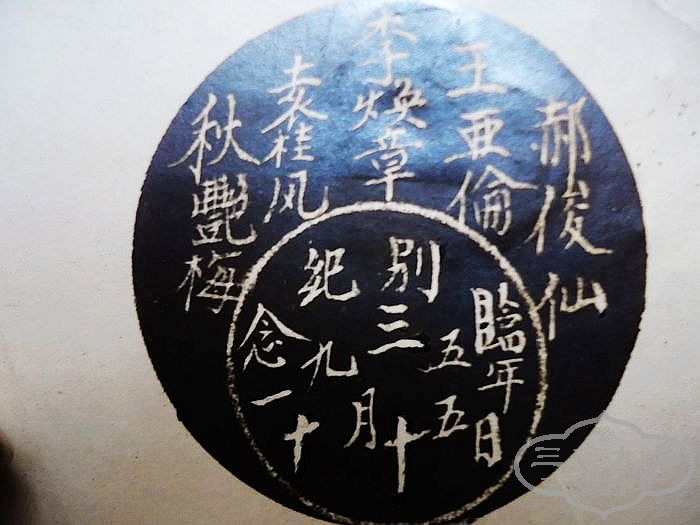 郝俊仙
王亜倫
李焕章
袁桂风
秋艷梅
臨别紀念
一九三五年
十月十五日